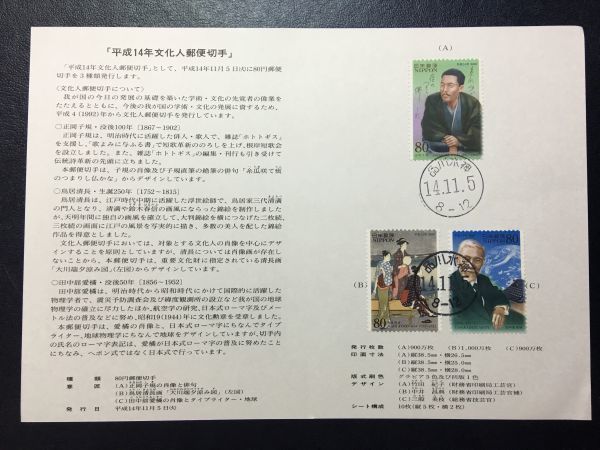 「平成14年文化人郵便切手」
「平成14年文化人郵便切手」として、平成14年11月5日(火)に80円郵便
切手を3種類発行します。
〈文化人郵便切手について〉
我が国の今日の発展の基礎を築いた学術・文化の先覚者の偉業を
たたえるとともに、今後の我が国の学術・文化の発展に資するため、
平成4(1992)年から文化人郵便切手を発行しています。
○正岡子規・没後100年[1867~1902]
正岡子規は、明治時代に活躍した俳人・歌人で、雑誌「ホトトギス」
を支援し、「歌よみに与ふる書」で短歌革新ののろしを上げ、根岸短歌会
を設立しました。また、雑誌「ホトトギス」の編集・刊行も引き受けて
伝統詩革新の先頭に立ちました。
本郵便切手は、子規の肖像及び子規直筆の絶筆の俳句「糸瓜咲て痰
のつまりし仏かな」からデザインしています。
○鳥居清長・生誕250年[1752~1815]
鳥居清長は、江戸時代中期に活躍した浮世絵師で、鳥居家三代清満
の門人となり、清満や鈴木春信の画風にならった錦絵を制作しました
が、天明年間に独自の画風を確立して、大判錦絵を横につなげた二枚続、
三枚続の画面に江戸の風景を写実的に描き、多数の美人を配した錦絵
作品を得意としました。
文化人郵便切手においては、対象とする文化人の肖像を中心にデザ
インすることを原則としていますが、清長については肖像画が存在し
ないことから、本郵便切手は、重要文化財に指定されている清長画
「大川端夕涼み図」(左図)からデザインしています。
○田中舘愛橘・没後50年[1856~1952]
田中舘愛橘は、明治時代から昭和時代にかけて国際的に活躍した
物理学者で、震災予防調査会及び緯度観測所の設立など我が国の地球
物理学の確立に尽力したほか、航空学の研究、日本式ローマ字及びメー
トル法の普及などに努め、昭和19(1944)年に文化勲章を受章しました。
本郵便切手は、愛橘の肖像と、日本式ローマ字にちなんでタイプ
ライター、地球物理学にちなんで地球をデザインしていますが、切手内
の氏名のローマ字表記は、愛橘が日本式ローマ字の普及に努めたこと
にちなみ、ヘボン式ではなく日本式で行っています。
種類 80円郵便切手
意匠 (A)正岡子規の肖像と俳句
(B)鳥居清長画「大川端夕涼み図」(左図)
(C)田中舘愛橘の肖像とタイプライター・地球
発行日 平成14年11月5日(火)
(A)
日本郵便
NIPPON
80
品川水神
14.11.5
8-12
(B)
日本郵便
NIPPON
80
品川水神
14.11.5
8-12
日本郵便
NIPPON
80
(C)
発行枚数 (A)900万枚 (B)1,000万枚 (C)900万枚
印面寸法 (A)縦38.5mm・横26.5mm
(B)縦38.5mm・横28.0mm
(C)縦35.5mm・横28.0mm
版式刷色 グラビア5色及び凹版1色
デザイン (A)竹田 紀子(財務省印刷局工芸官)
(B)中井 昌典(財務省印刷局工芸官補)
(C)三股 美枝(総務省技芸官)
シート構成 10枚(縦5枚・横2枚)